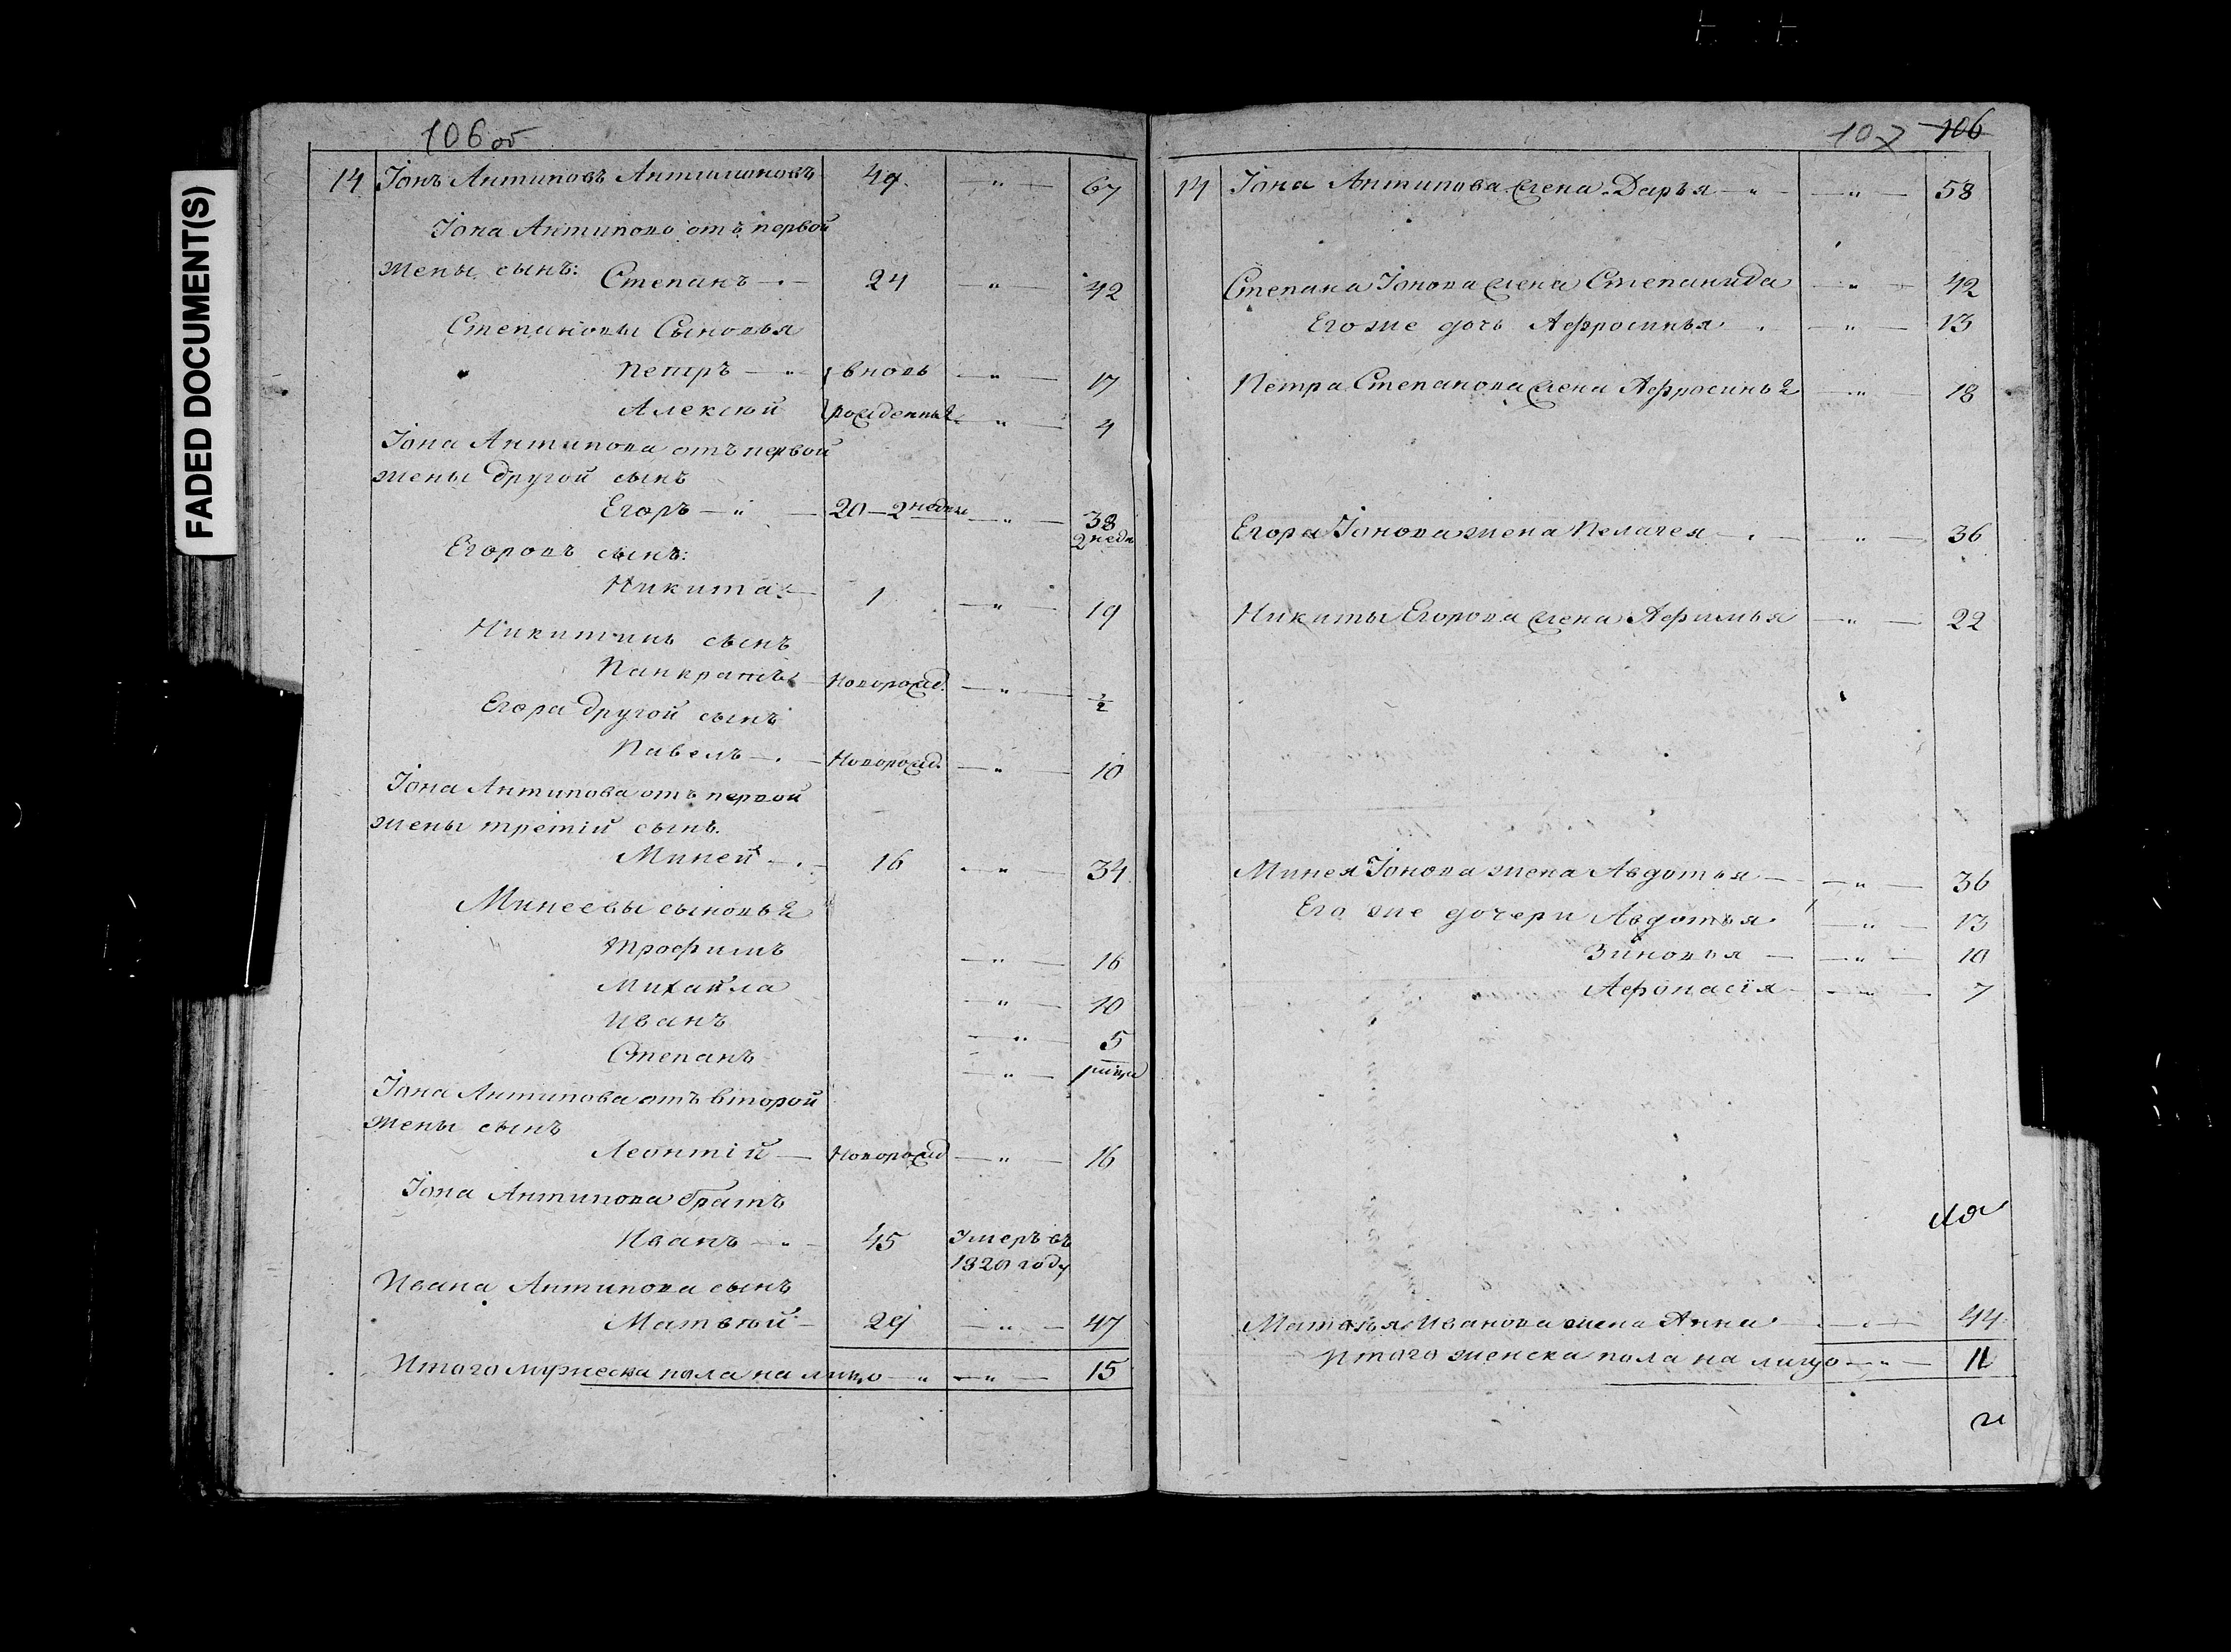 FADED DOCUMENT(S)
106 об
14 Іонъ Антиповъ Антимоновъ 49 — " — 67
Іона Антипова отъ первой
жены сынъ: Степанъ — 24 — " — 42
Степановы Сыновья
Петръ — " вновь — " — 17
Алексѣй рожденные — " — 4
Іона Антипова отъ первой
жены другой сынъ
Егоръ — " — 20 — 2 недели — " — 38
2 недѣ
Егоровъ сынъ:
Никита — 1 — " — 19
Никитинъ сынъ
Панкратъ — Новорожд. — " — ½
Егора другой сынъ
Павелъ — Новорожд. — " — 10
Іона Антипова отъ первой
жены третій сынъ.
Миней — 16 — " — 34
Минеевы сыновья
Трофимъ — " — 16
Михайла — " — 10
Иванъ — " — 5
Степанъ — " —
Іона Антипова отъ второй
жены сынъ
Леонтій — Новорожд — " — 16
Іона Антипова братъ
Иванъ — " — 45 Умеръ въ
1820 году
Ивана Антипова сынъ
Матвѣй — 29 — " — 47
Итого мужеска пола на лицо — " — " — 15
107 106
14 Іона Антипова жена Дарья — " — — " — 58
Степана Іонова жена Степанида — " — 42
Его же дочь Афросинья — " — 13
Петра Степанова жена Афросинья — " — 18
Егора Іонова жена Пелагея — " — 36
Никиты Егорова жена Афимья — " — 22
Минея Іонова жена Авдотья — — " — 36
Его же дочери Авдотья — " — 13
Зиновья — — " — 10
Афонасія — " — 7
Матвѣя Иванова жена Анна — " — 44
Итого женска пола на лицо — " — 11